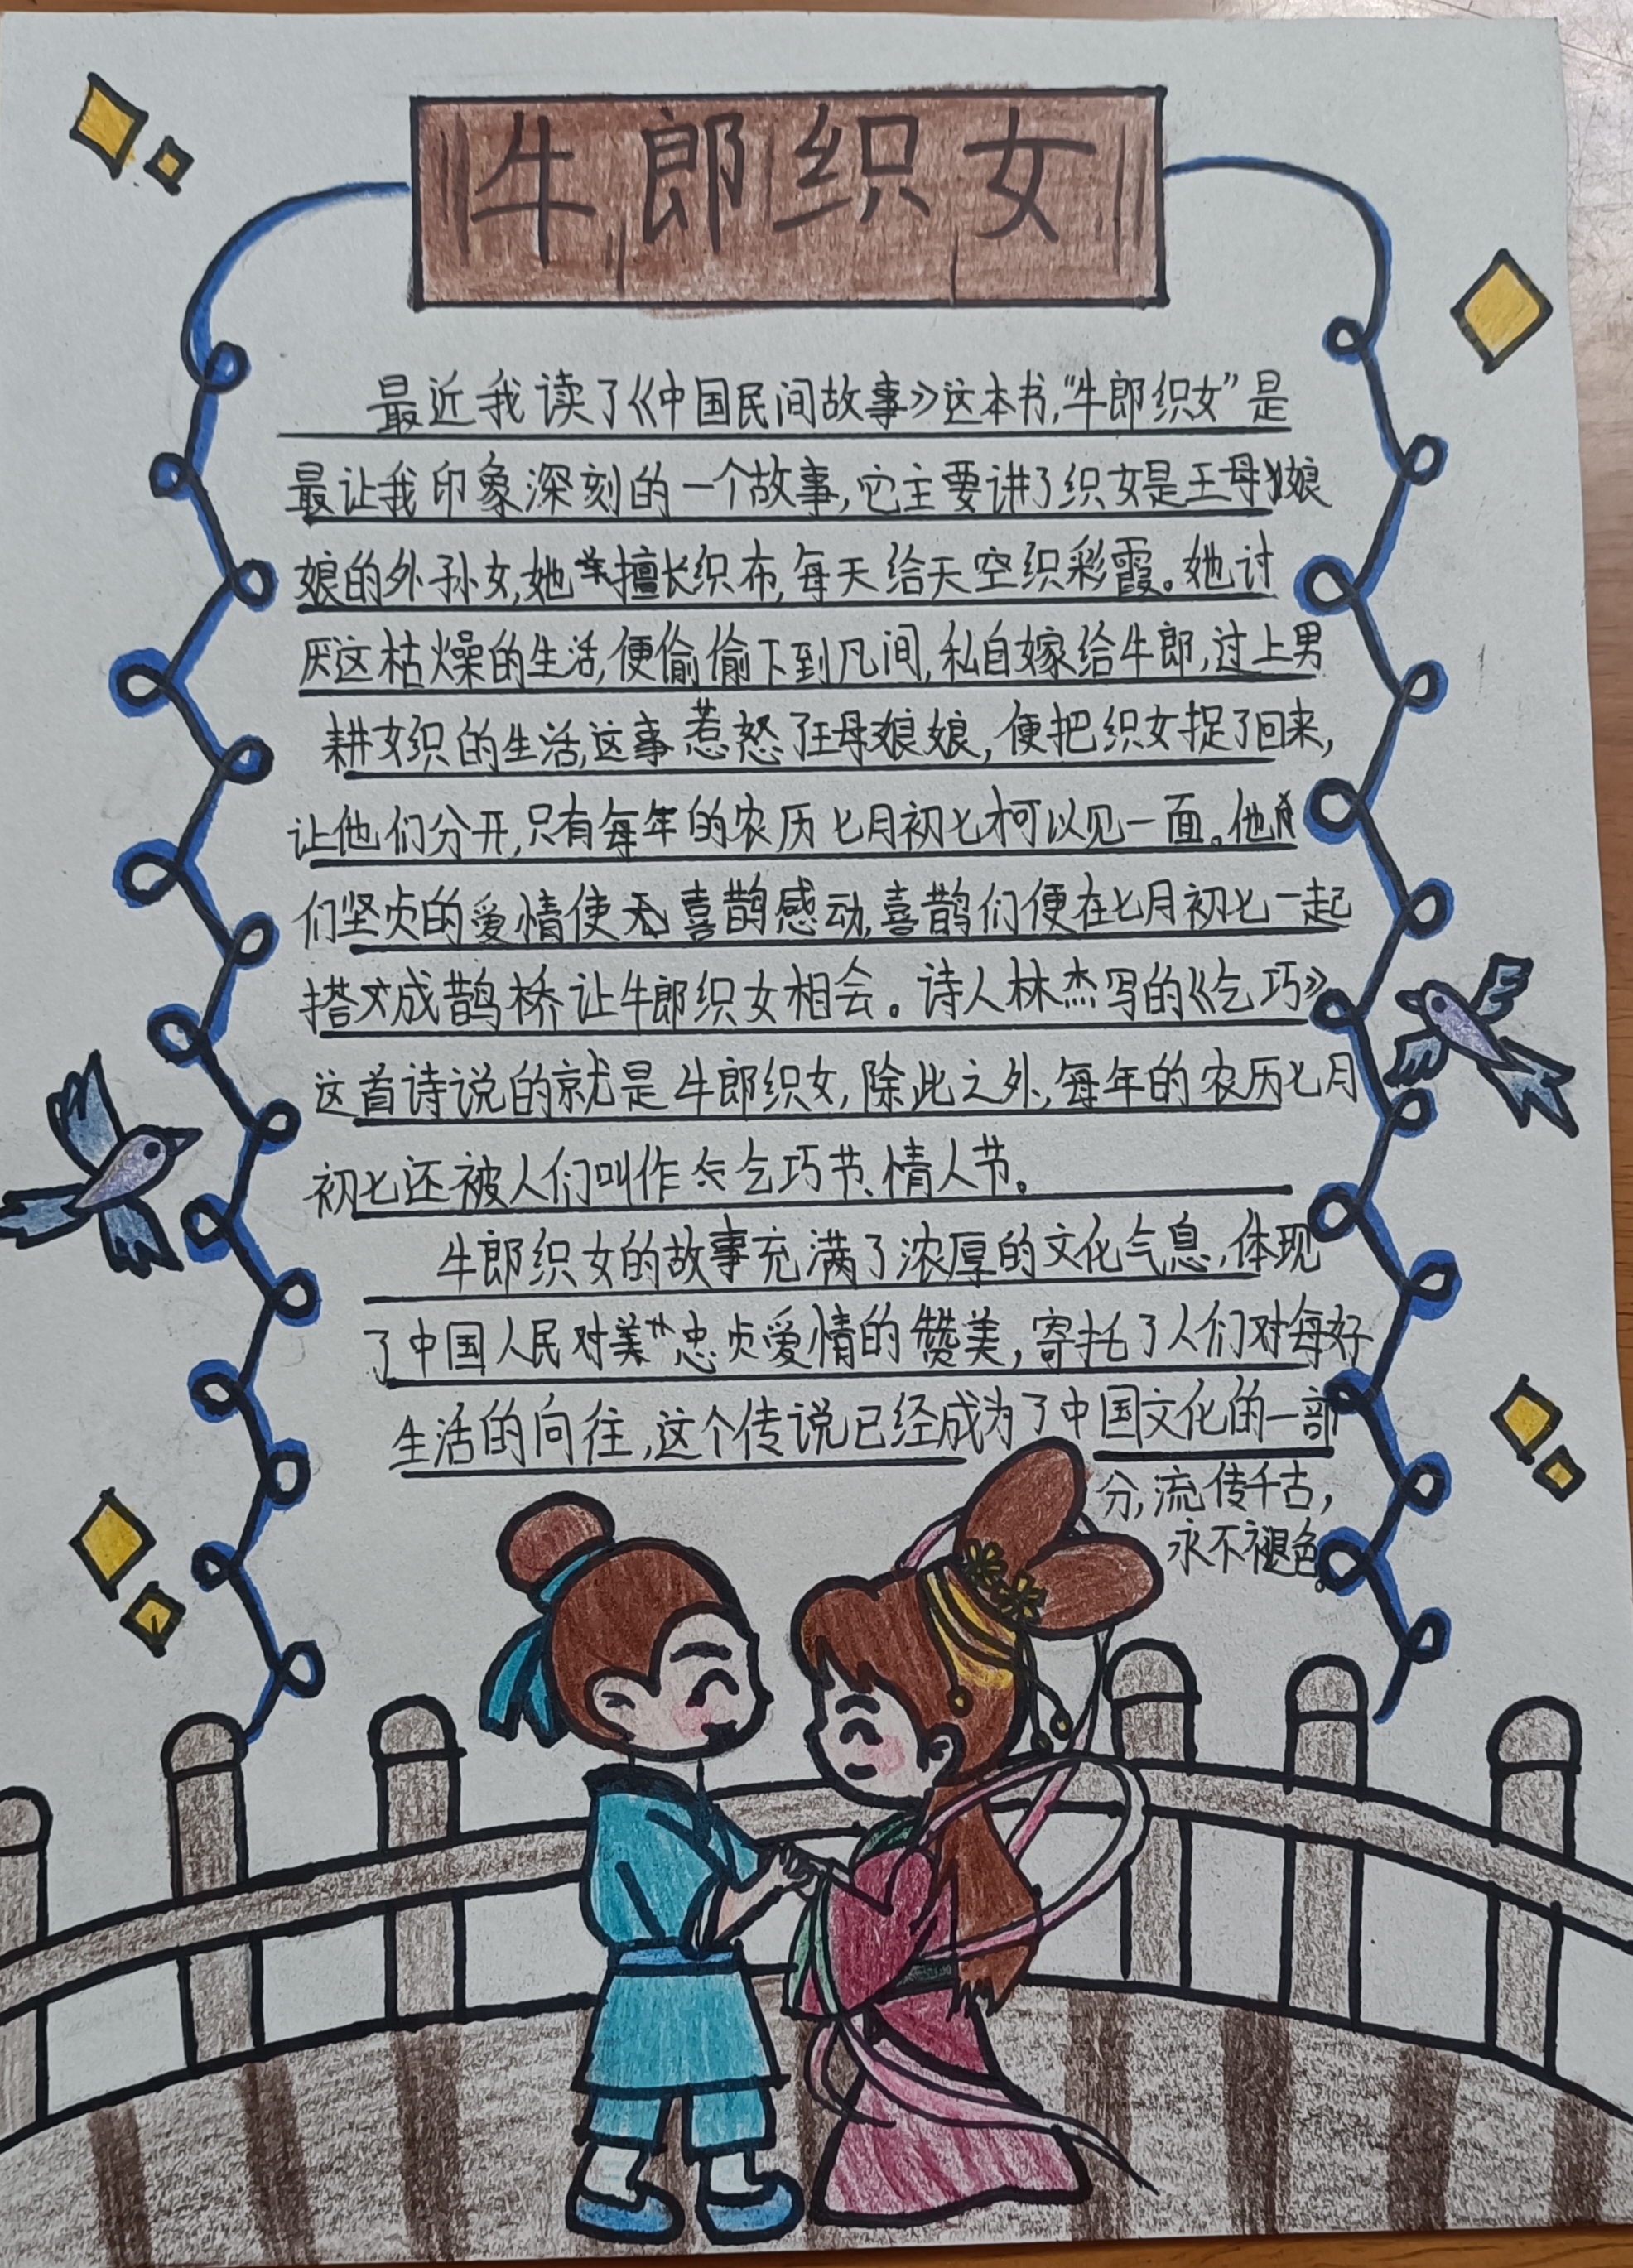 牛郎织女
最近我读了《中国民间故事》这本书,“牛郎织女”是
最让我印象深刻的一个故事,它主要讲了织女是王母娘
娘的外孙女,她擅长织布,每天给天空织彩霞。她讨
厌这枯燥的生活,便偷偷下到凡间,私自嫁给牛郎,过上男
耕女织的生活,这事惹怒了王母娘娘,便把织女捉了回来,
让他们分开,只有每年的农历七月初七才可以见一面。他
们坚贞的爱情使无喜鹊感动,喜鹊们便在七月初七一起
搭成鹊桥让牛郎织女相会。诗人林杰写的《乞巧》
这首诗说的就是牛郎织女,除此之外,每年的农历七月
初七还被人们叫作乞巧节、情人节。
牛郎织女的故事充满了浓厚的文化气息,体现
了中国人民对忠贞爱情的赞美,寄托了人们对每好
生活的向往,这个传说已经成为了中国文化的一部
分,流传千古,
永不褪色。